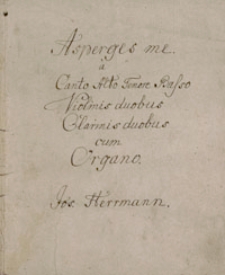 Asperges me.
a
Canto Alto Tenore Basso
Violinis duobus
Clarinis duobus
cum
Organo.
Jos. Herrmann.